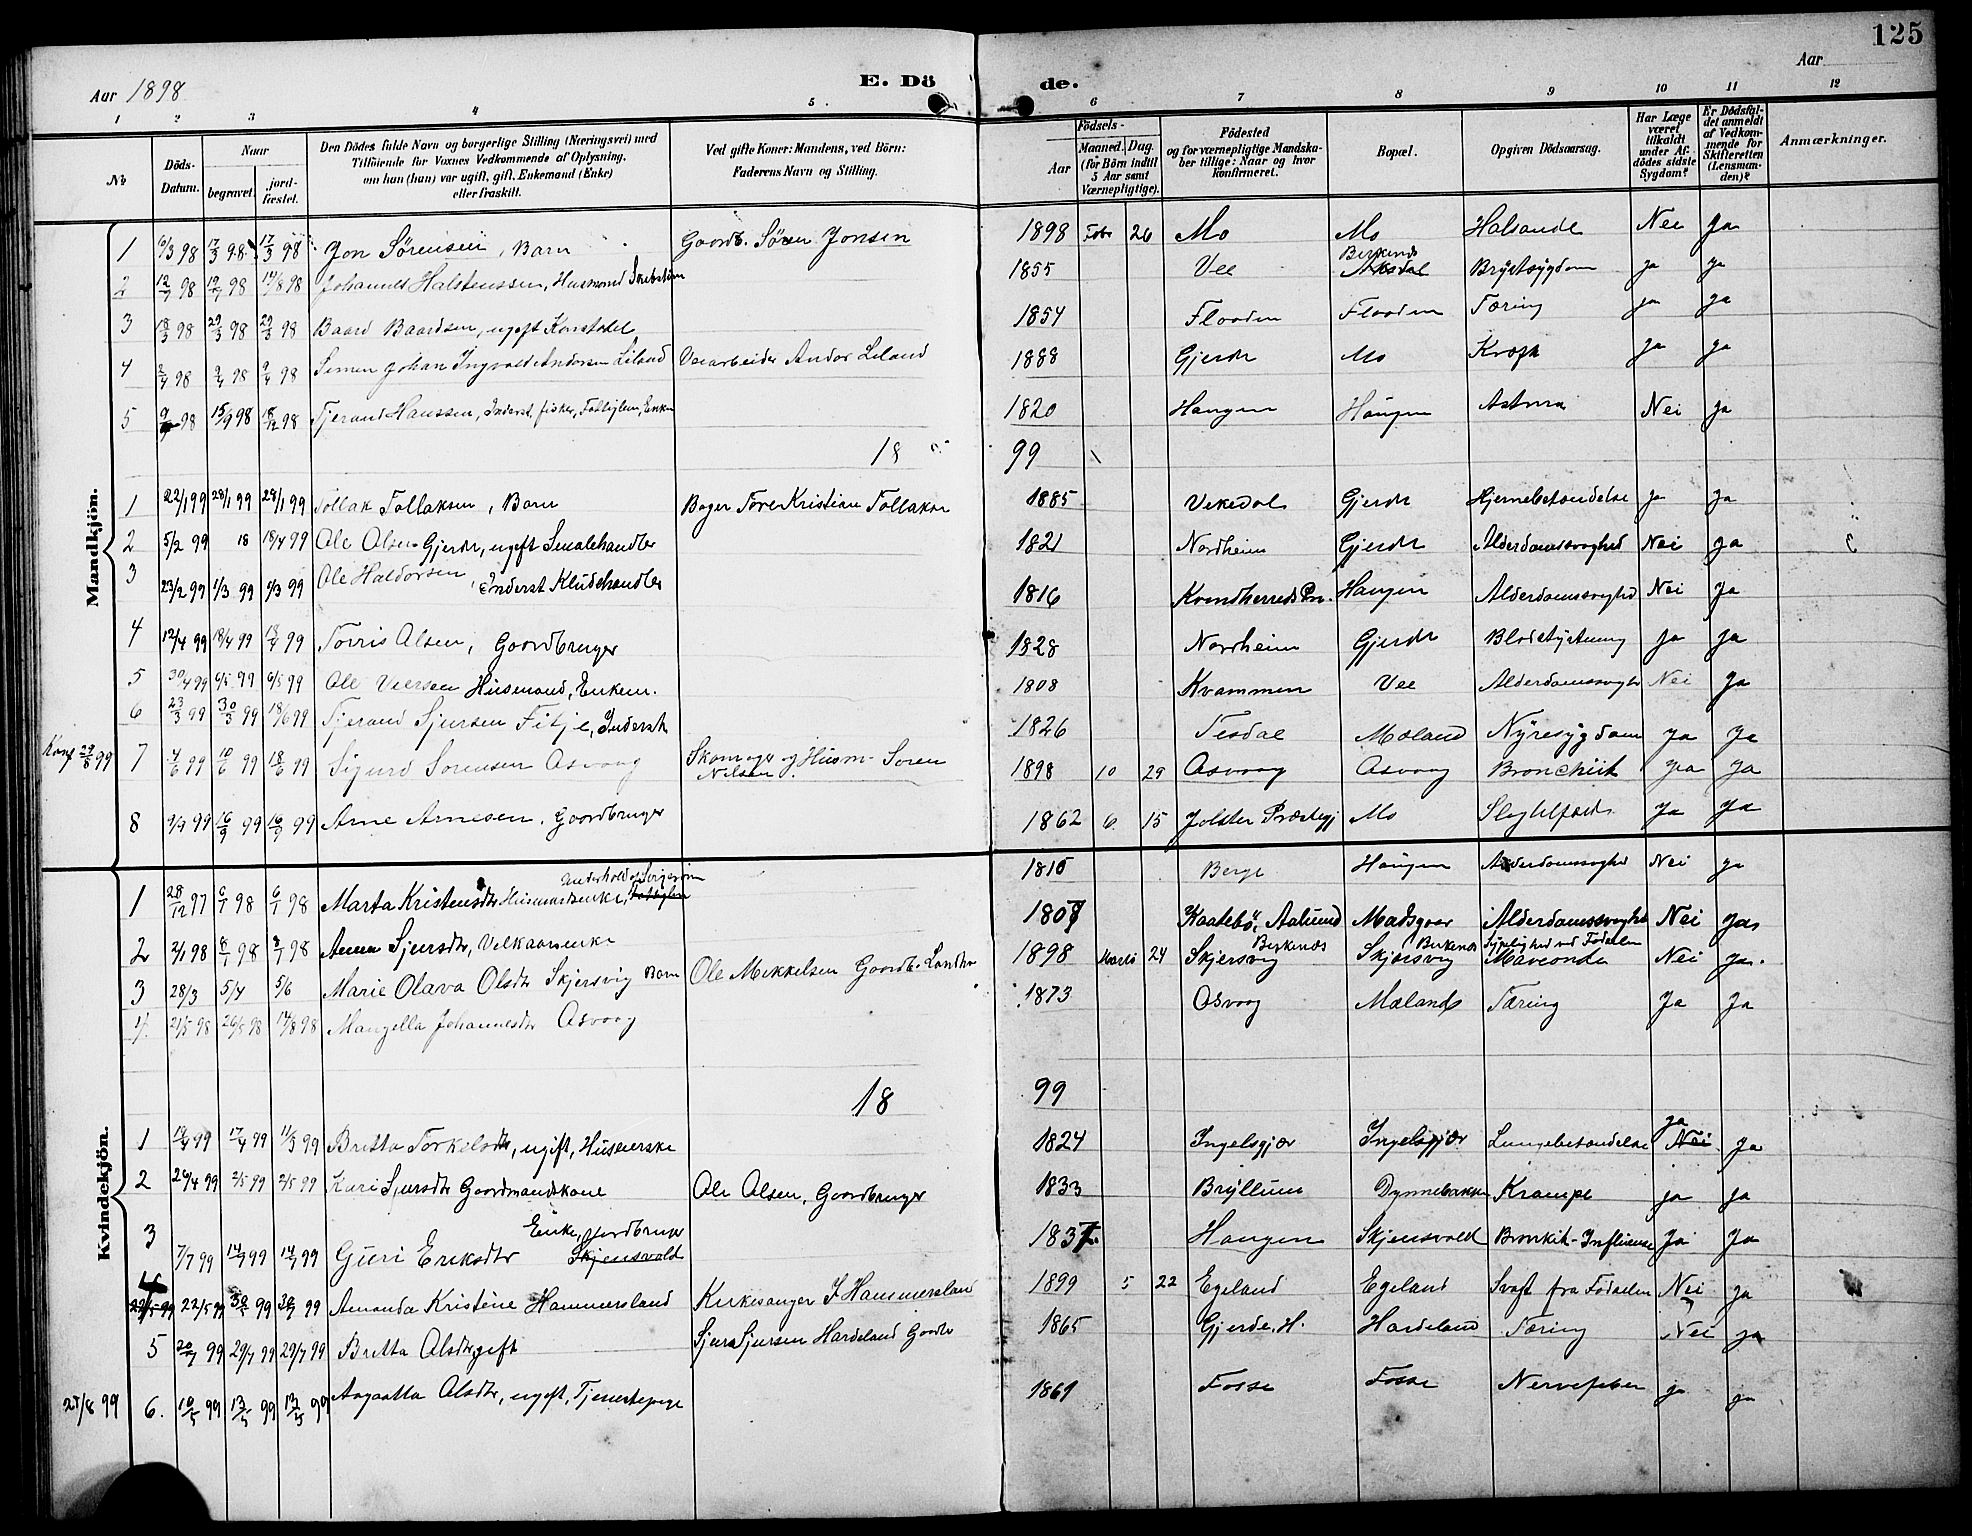 125
Aar 1898
E. Dö
de.
Aar
1 2 3 4 5 6 7 8 9 10 11 12
No
Döds-Datum.
Naar
begravet.
jord-fæstet.
Den Dödes fulde Navn og borgerlige Stilling (Næringsvei) med
Tilföiende for Voxnes Vedkommende af Oplysning,
om han (hun) var ugift, gift, Enkemand (Enke)
eller fraskilt.
Ved gifte Koner: Mandens, ved Börn:
Faderens Navn og Stilling.
Födsels-
Aar
Maaned. Dag.
(for Börn indtil
5 Aar samt
Værnepligtige).
Födested
og for værnepligtige Mandska-
ber tillige: Naar og hvor
konfirmeret.
Bopæl.
Opgiven Dödsaarsag.
Har Læge
været
tilkaldt
under Af-
dödes sidste
Sygdom?
Er Dödsfal-
det anmeldt
af Vedkom-
mende for
Skifteretten
(Lensman-
den)?
Anmærkninger.
Mandkjön.
1 6/3 98 17/3 98 17/3 98 Jon Sørensen, Barn Gaardb. Søren Jonsen 1898 Febr 26 Mo Mo Halsonde Nei Ja
2 12/7 98 19/7 98 14/8 98 Johannes Halstenssen, Husmand 1855 Vee Birkenes Brystsygdom ja ja
3 18/3 98 29/3 98 29/3 98 Baard Baardsen, ugift 1854 Flaaden Flaaden Tæring ja ja
4 2/4 98 9/4 98 9/4 98 Simen Johan Ingvald Andorsen Liland Veiarbeider Andor Leland 1888 Gjerde Mo Kræft ja ja
5 98 15/9 98 18/12 98 Tjerand Hanssen, Inderst, fisker, Fattiglem, Enkem 1820 Haugen Haugen Astma Nei ja
18 99
1 22/1 99 28/1 99 28/1 99 Tollak Tollaksen, Barn Bager Tore Kristian Tollaksen 1885 Vikedal Gjerde Hjernebetændelse ja ja
2 5/2 99 18 18/4 99 Ole Olsen Gjerde, ugift Smalehandler 1821 Nordheim Gjerde Alderdomssvaghed Nei ja
3 23/2 99 1/3 99 1/3 99 Ole Haldorsen, Inderst Kludehandler 1816 Kvindherreds Pr. Haugen Alderdomssvaghed Nei Ja
4 12/4 99 18/4 99 18/4 99 Torris Olsen, Gaardbruger 1828 Nordheim Gjerde Blodstyrtning ja ja
5 30/4 99 6/5 99 6/5 99 Ole Veersen Husmand, Enkem. 1808 Kvammen Vee Alderdomssvaghd Nei Ja
6 23/3 99 30/3 99 18/6 99 Tjerand Sjursen Fitje, Inderst 1826 Tesdal Mæland Nyresygdom ja Ja
7 4/6 99 10/6 99 18/6 99 Sigurd Sørensen Asvaag Skomager og Husm. Søren Nilsen 1898 10 29 Asvaag Asvaag Bronchit ja Ja
8 9/9 99 16/9 99 16/9 99 Arne Arnesen, Gaardbruger 1862 6 15 Jølster Præstegj Mo Ja Ja
Kvindekjön.
1 28/12 97 6/1 98 6/1 98 Marta Kristensdtr Husmandsenke, Underhold af Svigersøn 1815 Berge Haugen Alderdomssvaghed Nei ja
2 2/1 98 8/1 98 8/1 98 Anna Sjursdtr, 1807 Aalund Madsgaar Alderdomssvaghed Nei Ja
3 28/3 5/4 5/6 Marie Olava Olsdtr Skjersvig Barn Ole Mikkelsen Gaardb. Landhr 1898 Marts 24 Skjersvig Birkenes Skjersvig Birkenes Nei ja.
4 21/5 98 26/5 98 14/8 98 Mangella Johannesdtr Asvaag 1873 Asvaag Mæland Tæring Ja Ja
18 99
1 99 17/4 99 11/3 99 Britta Torkelsdtr, ugift, Huseierske 1824 Ingelsgjær Ingelsgjær Lungebetændelse ja Nei Ja
2 26/4 99 2/5 99 2/5 99 Kari Sjursdtr Gaardmandskone Ole Olsen, Gaardbruger 1833 Bryllum Dynnebakke Krampe ja ja
3 7/7 99 14/7 99 14/7 99 Guri Eriksdtr Enke, Jordbruger Skjensvold 1837 Haugen Skjensvold Bronkit-Influense Ja Ja
4 22/5 99 30/5 99 99 Amanda Kristine Hammersland Kirkesanger J Hammersland 1899 5 22 Egeland Egeland Svag fra Fødselen Nei ja
5 20/7 99 29/7 99 29/7 99 Britta Olsdtr, gift Sjur Sjursen Hardeland Gaardbr 1865 Gjerde, H. Hardeland Tæring Nei ja
27/8 99 6. 10/5 99 13/5 99 13/5 99 Aagaatta Olsdtr, ugift, Tjenestepige 1861 Fosse Fosse Nervefeber ja ja